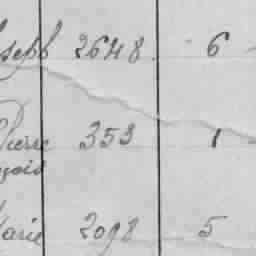 Joseph 2648 6
Pierre 353 1
Marie 2098 5